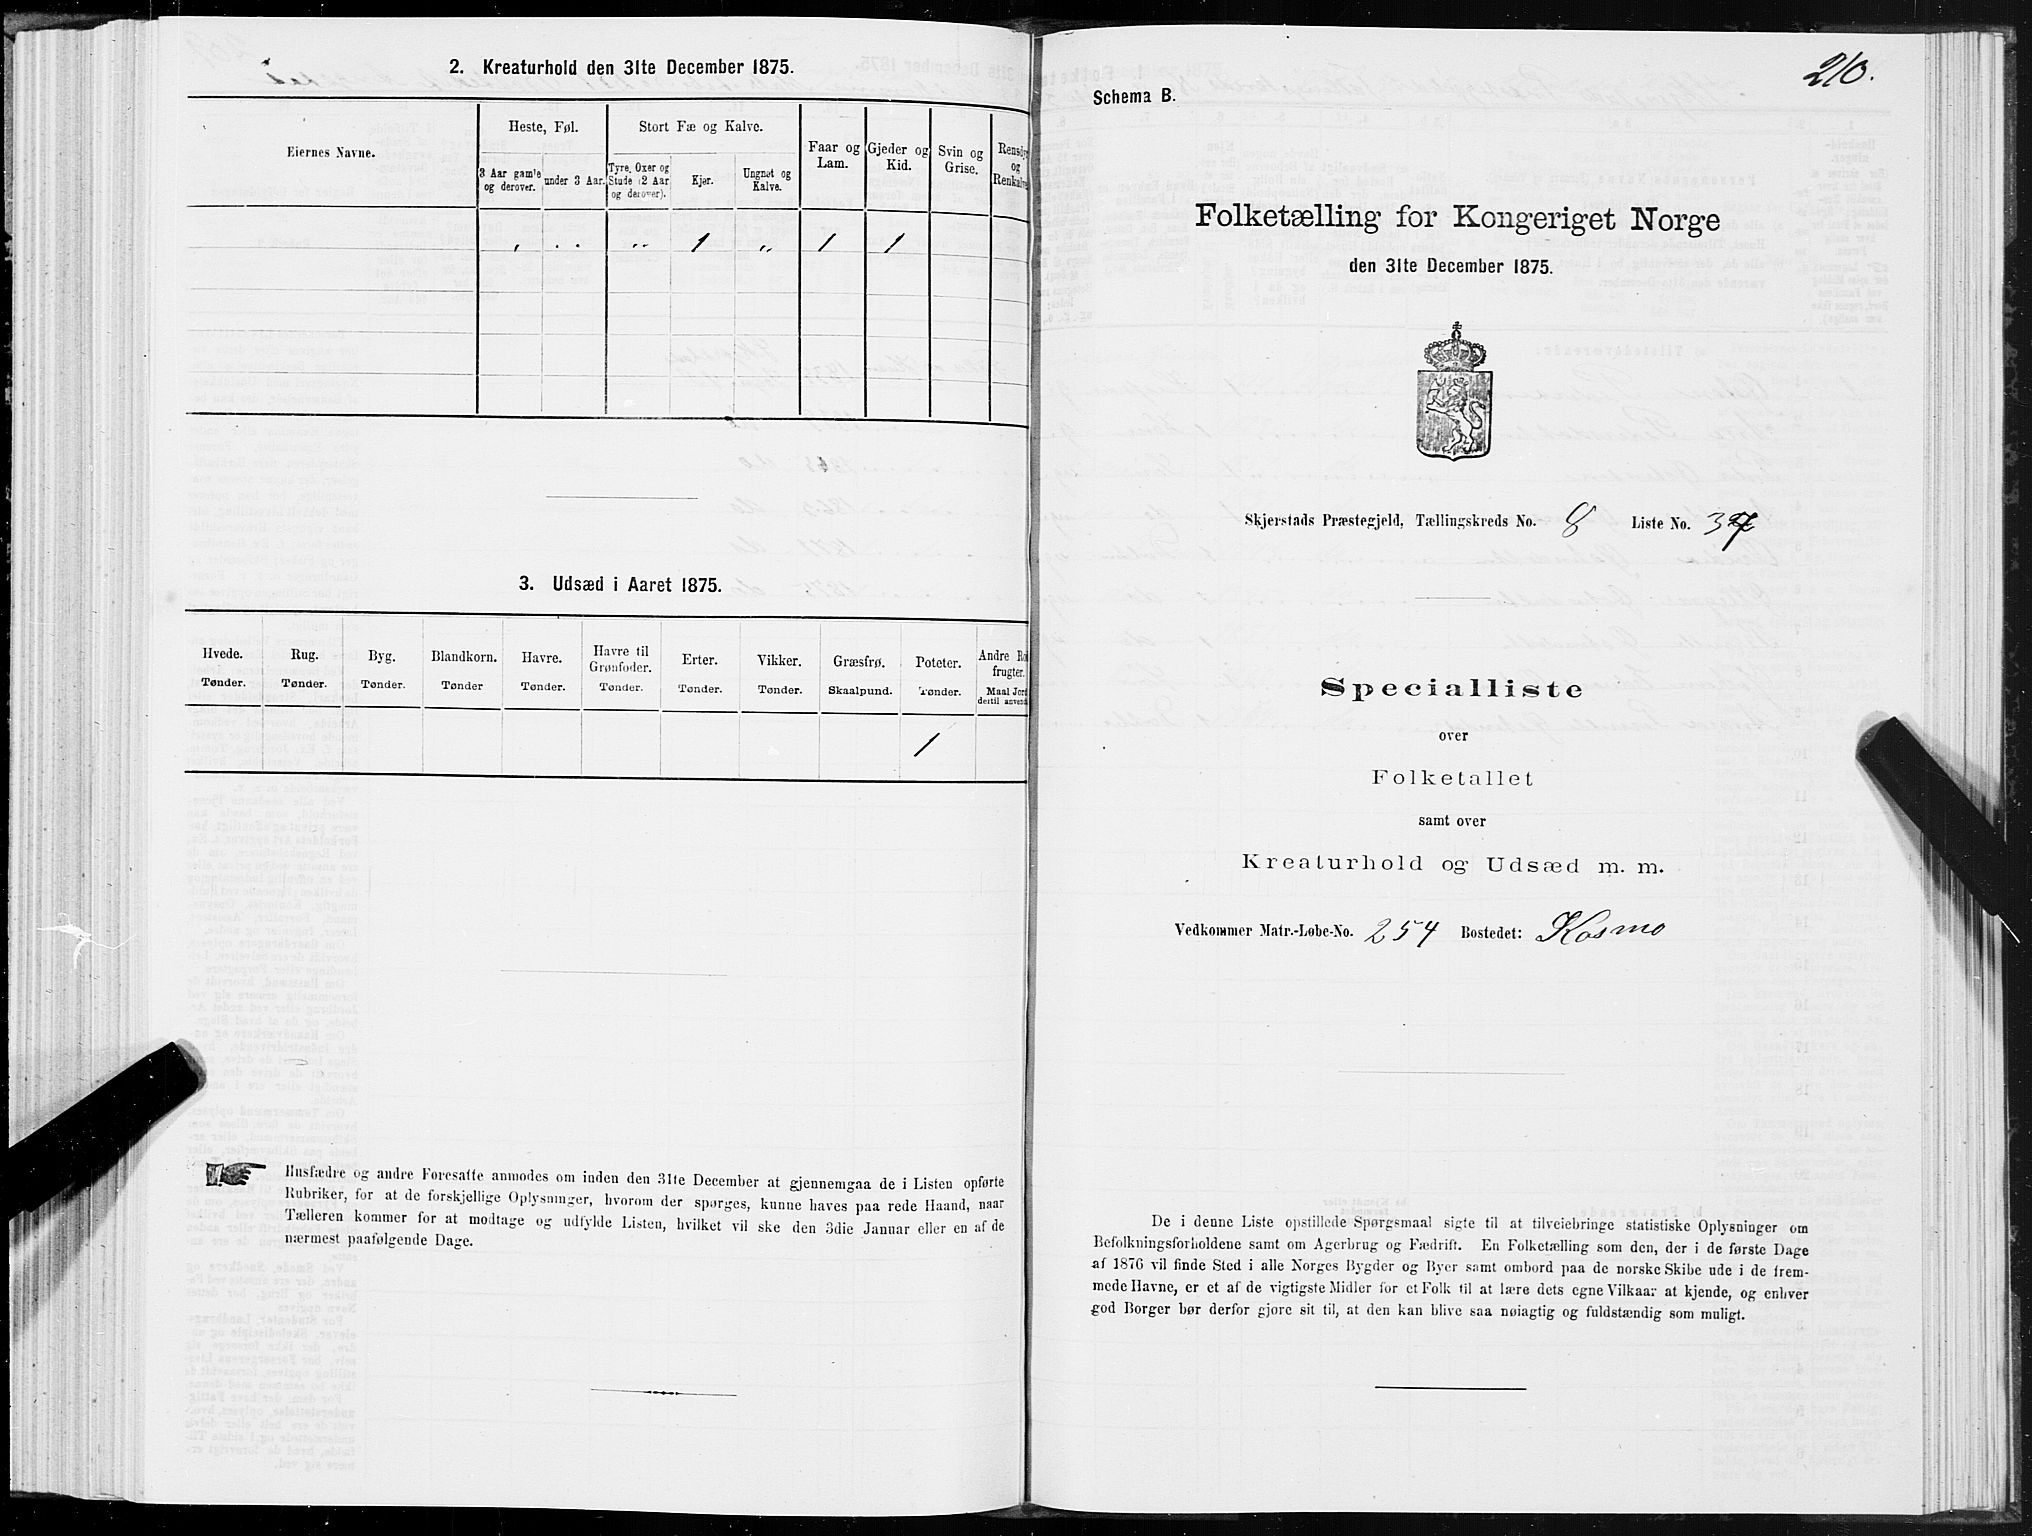 2. Kreaturhold den 31te December 1875.
Eiernes Navne.
Heste, Føl.
Stort Fæ og Kalve.
Faar og Lam.
Gjeder og Kid.
Svin og Grise.
Rensdyr og Renkalve
3 Aar gamle og derover.
under 3 Aar.
Tyre, Oxer og Stude (2 Aar og derover).
Kjør.
Ungnøt og Kalve.
" " " 1 " 1 1
3. Udsæd i Aaret 1875.
Hvede. Rug. Byg. Blandkorn. Havre. Havre til Grønfoder. Erter. Vikker. Græsfrø. Poteter. Andre Rodfrugter.
Tønder. Tønder. Tønder. Tønder Tønder. Tønder. Tønder. Tønder. Skaalpund. Tønder. Maal Jord dertil anvendt
1
Husfædre og andre Foresatte anmodes om inden den 31te December at gjennemgaa de i Listen opførte
Rubriker, for at de forskjellige Oplysninger, hvorom der spørges, kunne haves paa rede Haand, naar
Tælleren kommer for at modtage og udfylde Listen, hvilket vil ske den 3die Januar eller en af de
nærmest paafølgende Dage.
210.
Schema B.
Folketælling for Kongeriget Norge
den 31te December 1875.
Skjerstads Præstegjeld, Tællingskreds No. 8 Liste No. 37
Specialliste
over
Folketallet
samt over
Kreaturhold og Udsæd m. m.
Vedkommer Matr.-Løbe-No. 254 Bostedet: Kosmo
De i denne Liste opstillede Spørgsmaal sigte til at tilveiebringe statistiske Oplysninger om
Befolkningsforholdene samt om Agerbrug og Fædrift. En Folketælling som den, der i de første Dage
af 1876 vil finde Sted i alle Norges Bygder og Byer samt ombord paa de norske Skibe ude i de frem-
mede Havne, er et af de vigtigste Midler for et Folk til at lære dets egne Vilkaar at kjende, og enhver
god Borger bør derfor gjøre sit til, at den kan blive saa nøiagtig og fuldstændig som muligt.